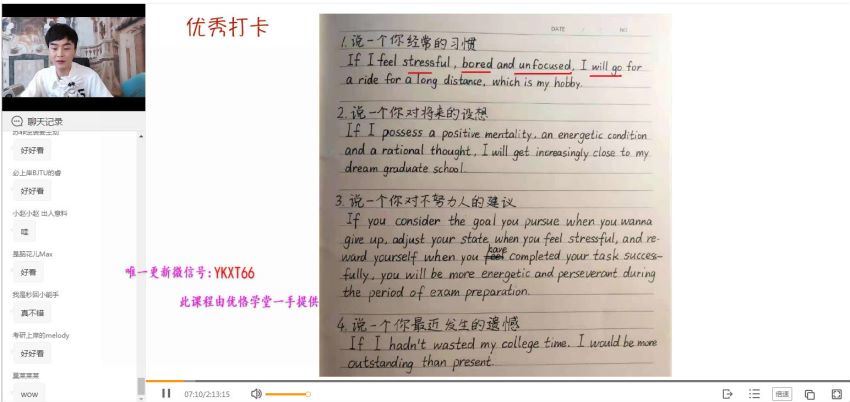 优秀打卡
DATE / / NO
1. 说一个你经常的习惯
If I feel stressful, bored and unfocused, I will go for
a ride for a long distance, which is my hobby.
2. 说一个你对将来的设想
If I possess a positive mentality, an energetic condition
and a rational thought, I will get increasingly close to my
dream graduate school.
3. 说一个你对不努力人的建议
If you consider the goal you pursue when you wanna
give up, adjust your state when you feel stressful, and re-
ward yourself when you have completed your task success-
fully, you will be more energetic and perseverant during
the period of exam preparation.
4. 说一个你最近发生的遗憾
If I hadn't wasted my college time. I would be more
outstanding than present.
聊天记录
好好看
必上岸BJTU的睿
好好看
小赵小赵 出人意料
哇
好看
我是秒回小能手
真不错
考研上岸的melody
好好看
wow
唯一更新微信号:YKXT66
此课程由优恪学堂一手提供
07:10/2:13:15
倍速